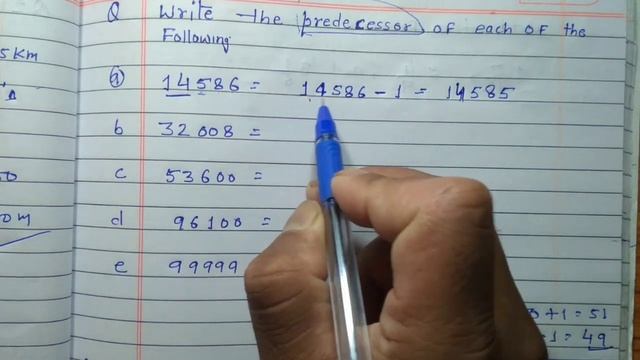 Q Write the predecessor of each of the
Following
5 Km
(a) 14586 = 14586 - 1 = 14585
b 32008 =
c 53600 =
d 96100 =
0 m
e 99999
+ 1 = 51
1 = 49